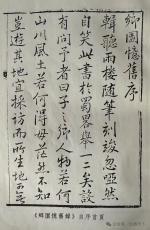 鄉園憶舊序
輯聽雨樓隨筆刻竣忽啞然
自笑此書於蜀畧舉一二矣設
有問予者曰子之鄉人物若何
山川風土若何得毋茫然不知
豈遊其地宜採訪而所生地
《鄉園憶舊錄》自序首頁